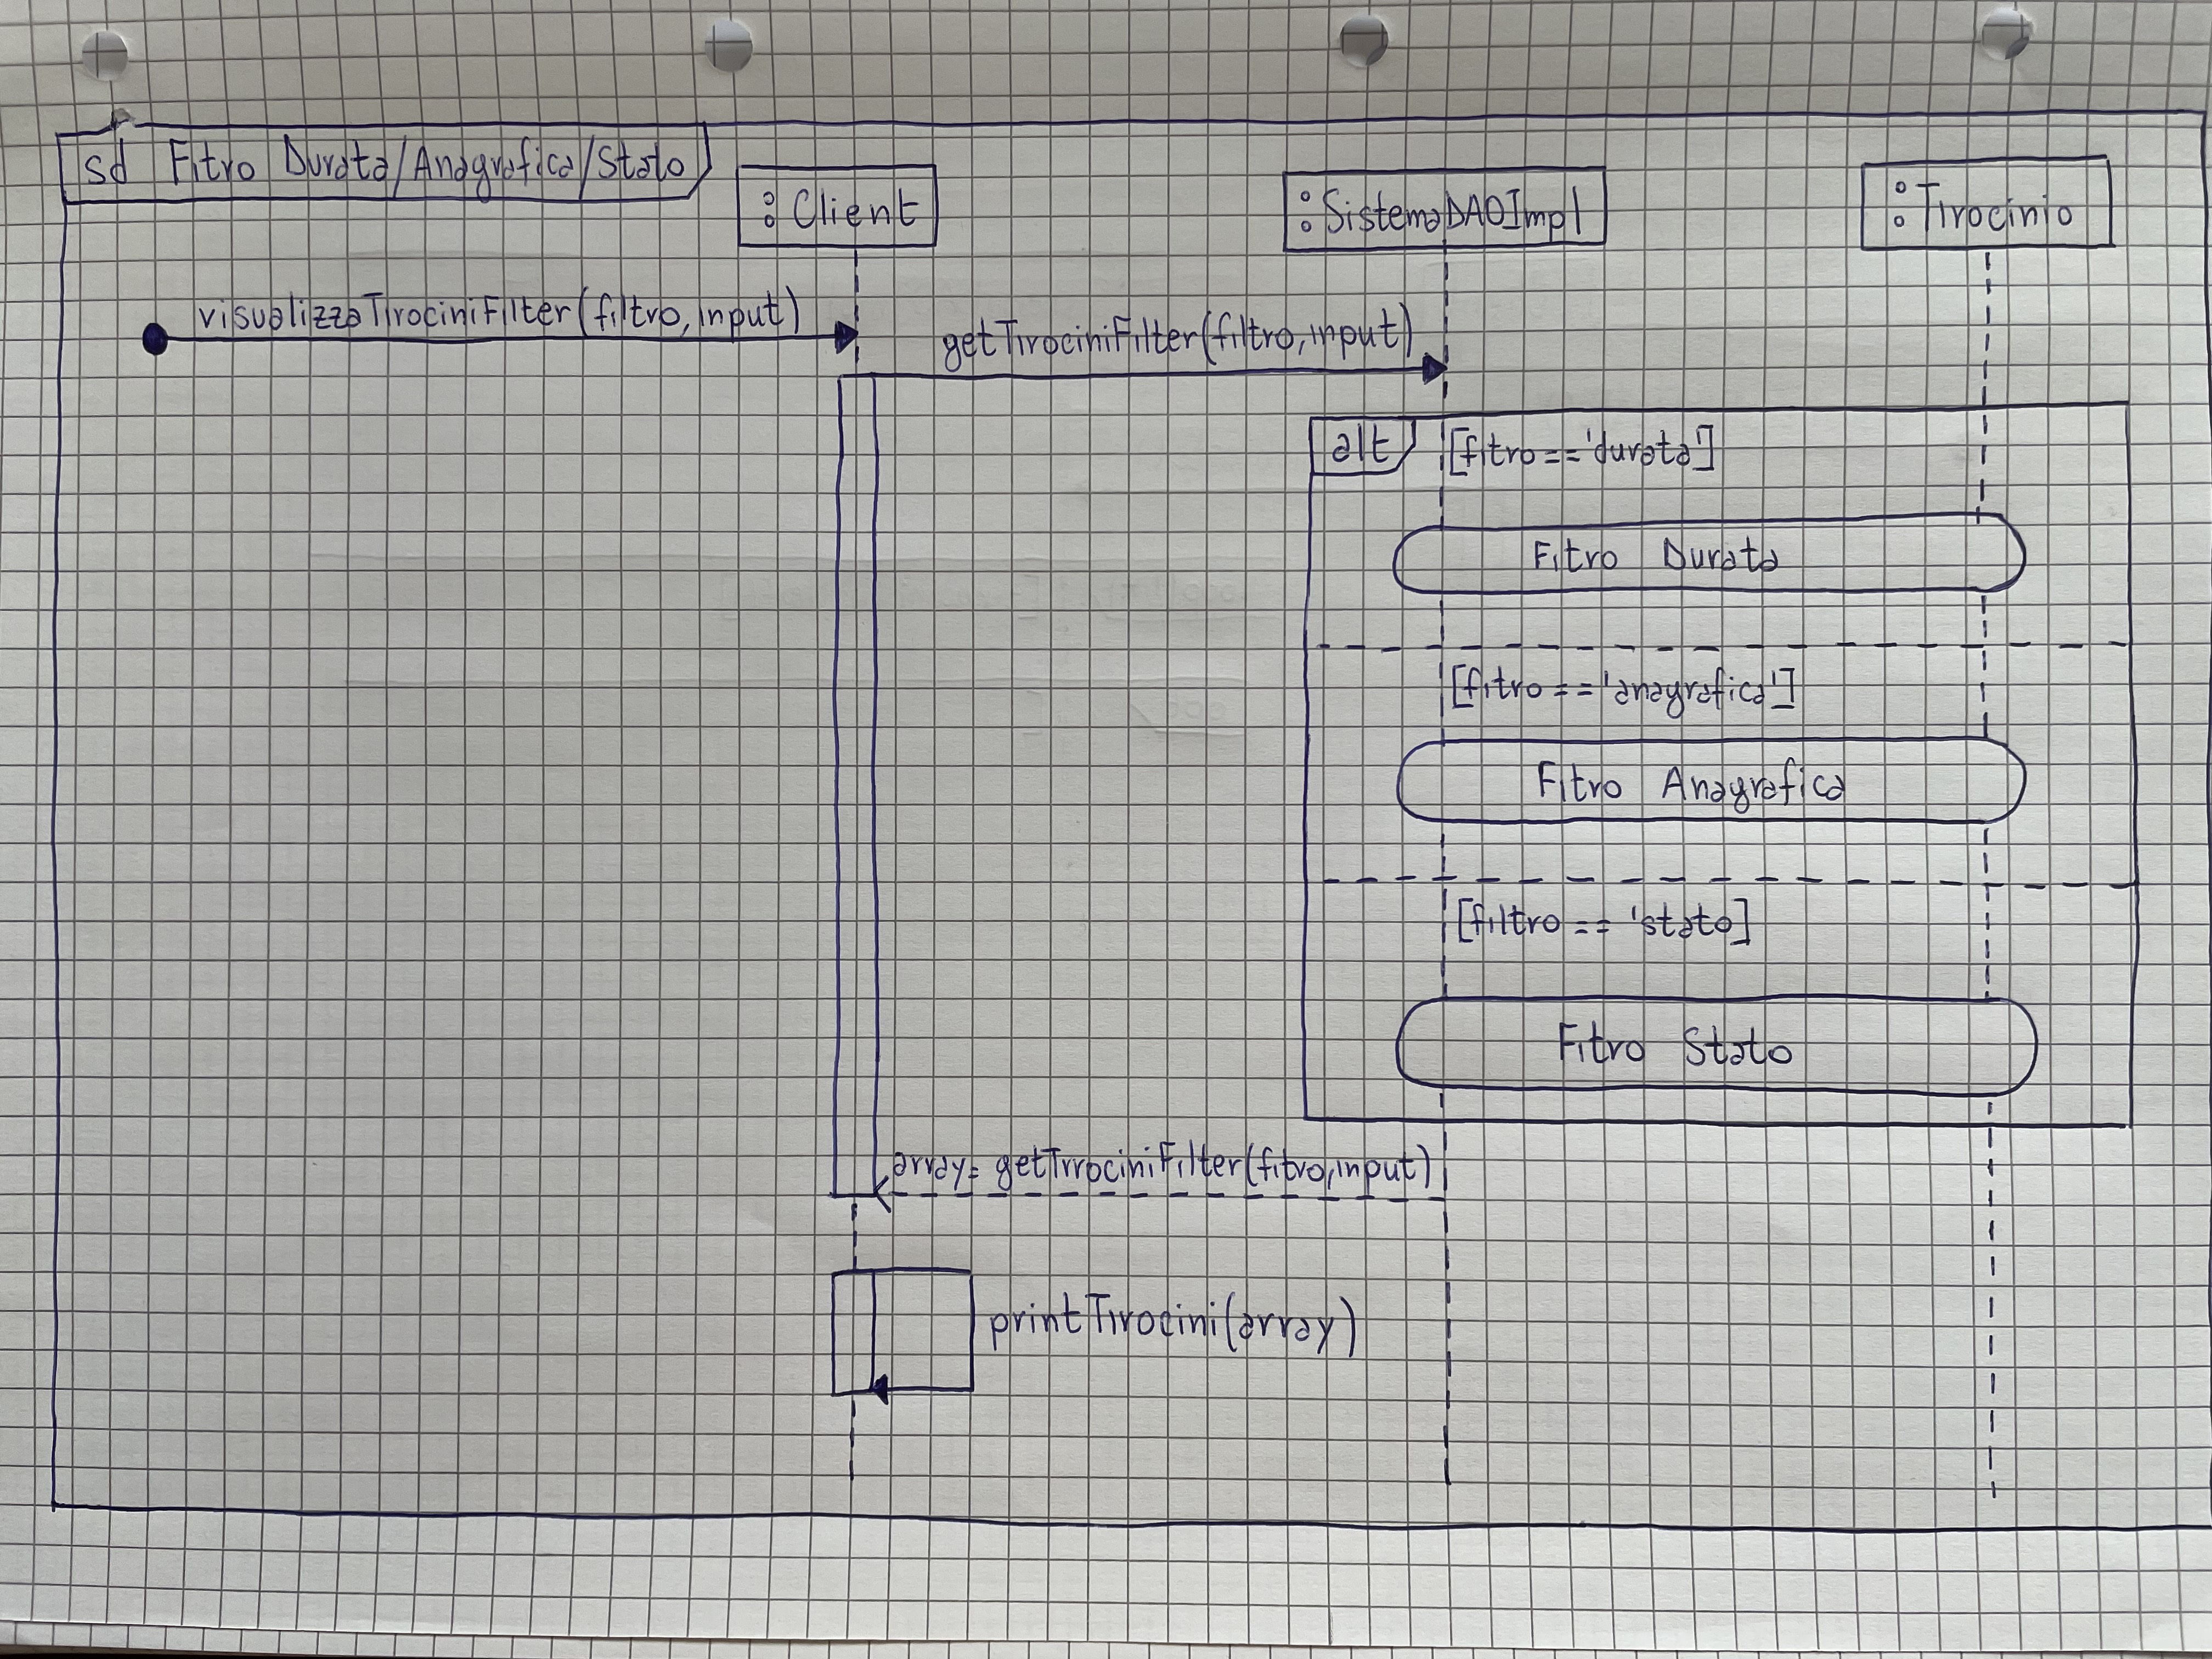 sd Fitro Durata/Anagrafica/Stato
:Client
:SistemaDAOImpl
:Tirocinio
visualizzaTirociniFilter(filtro,input)
getTirociniFilter(filtro,input)
alt
[fitro=='durata']
Fitro Durata
[fitro=='anagrafica']
Fitro Anagrafica
[filtro=='stato]
Fitro Stato
array=getTirociniFilter(fitro,input)
printTirocini(array)